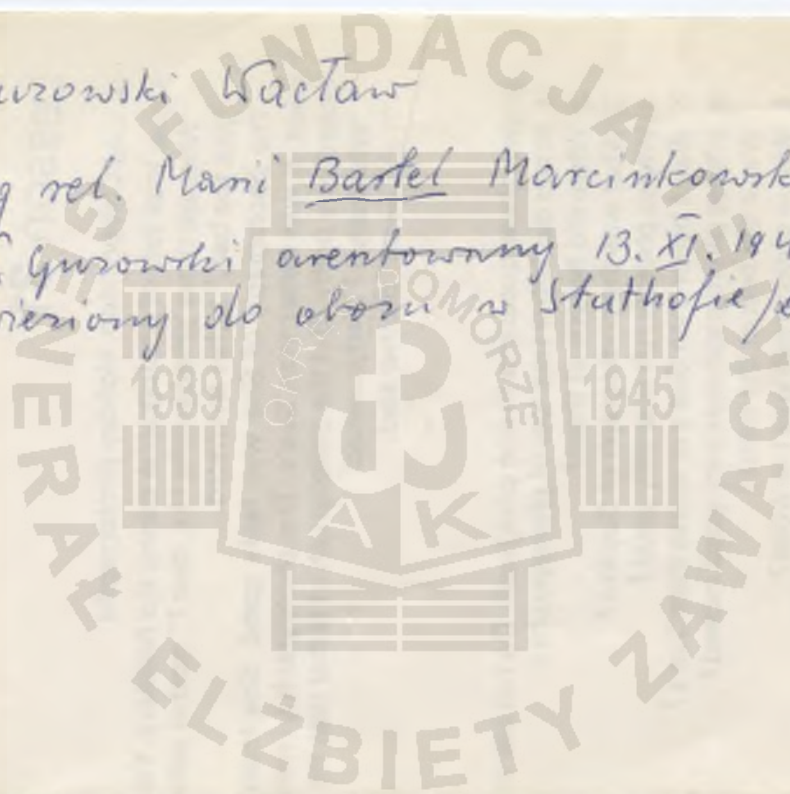 urowski Wacław
g rel. Marii Bartel Marcinkowsk
Gurowski aresztowany 13. XI. 194
wieziony do obozu w Stutthofie
FUNDACJA GENERAŁ ELŻBIETY ZAWACKIEJ
OKRĘG POMORZE
1939
1945
A K